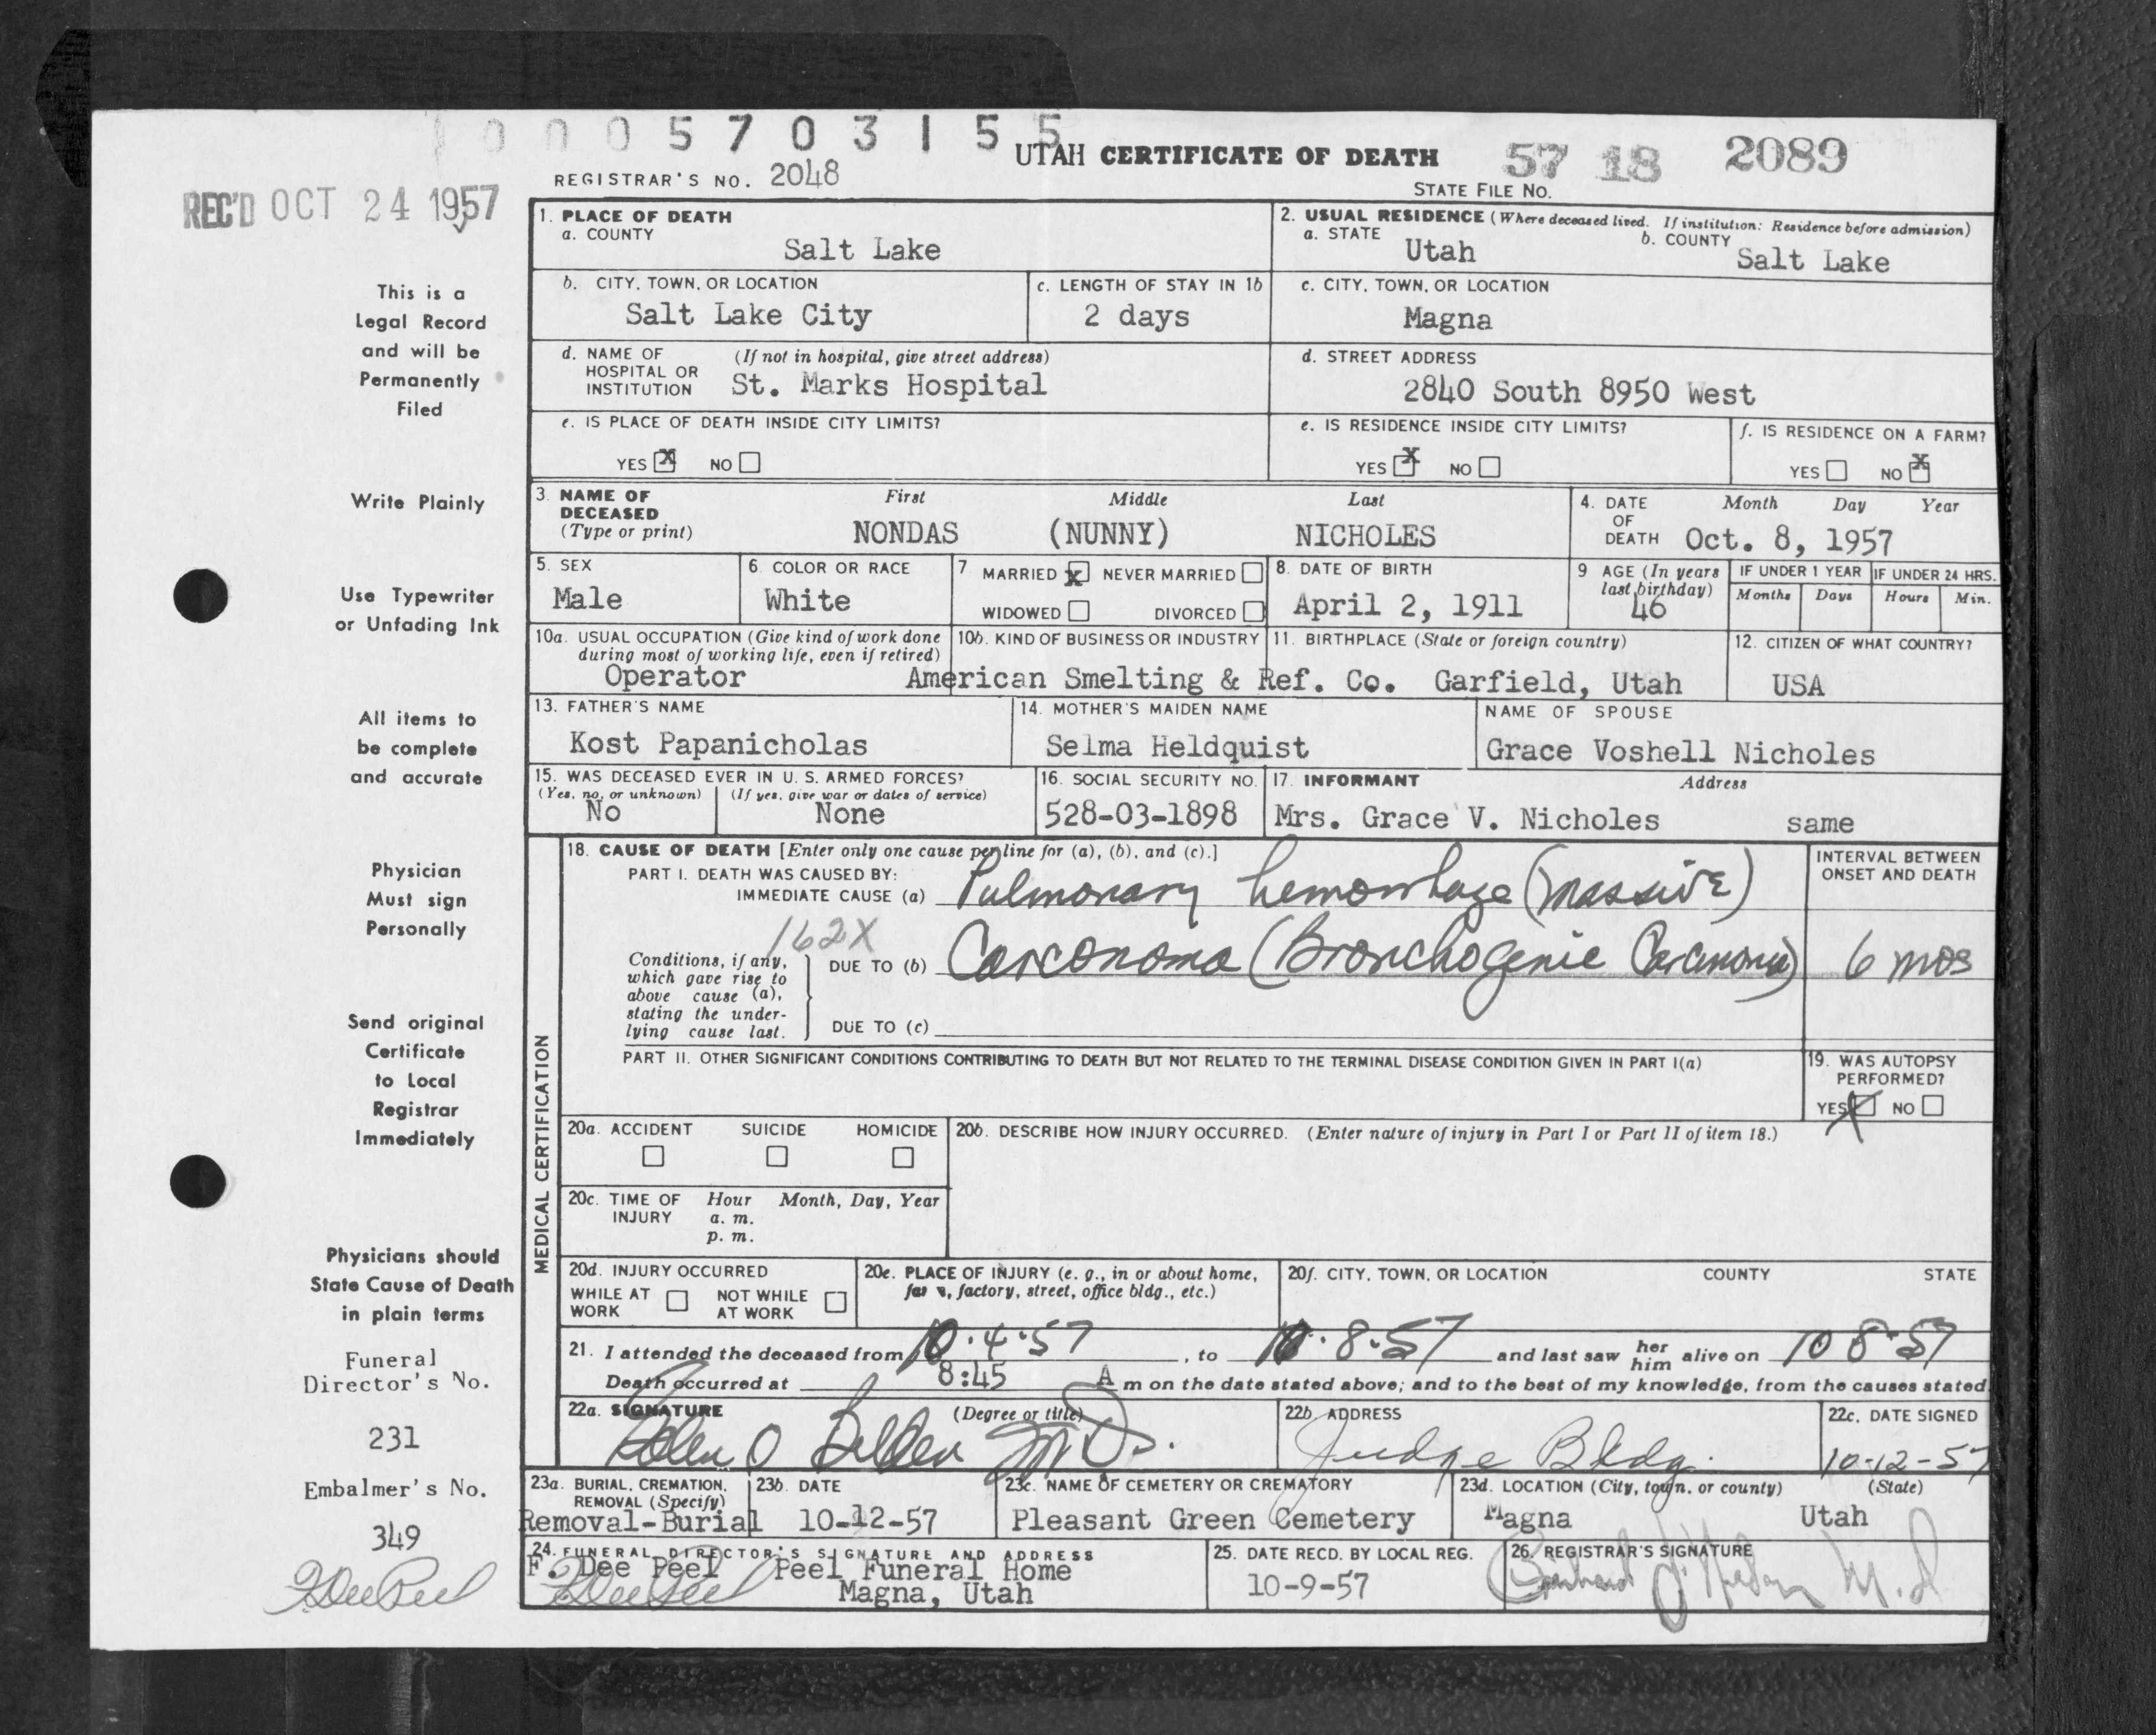 1 0 0 0 5 7 0 3 1 5 5
UTAH CERTIFICATE OF DEATH
57 18 2089
REGISTRAR'S NO. 2048
STATE FILE NO.
REC'D OCT 24 1957
This is a
Legal Record
and will be
Permanently
Filed
Write Plainly
Use Typewriter
or Unfading Ink
All items to
be complete
and accurate
Physician
Must sign
Personally
Send original
Certificate
to Local
Registrar
Immediately
Physicians should
State Cause of Death
in plain terms
Funeral
Director's No.
231
Embalmer's No.
349
1. PLACE OF DEATH
a. COUNTY
Salt Lake
2. USUAL RESIDENCE (Where deceased lived. If institution: Residence before admission)
a. STATE Utah
b. COUNTY Salt Lake
b. CITY, TOWN, OR LOCATION
Salt Lake City
c. LENGTH OF STAY IN 1b
2 days
c. CITY, TOWN, OR LOCATION
Magna
d. NAME OF (If not in hospital, give street address)
HOSPITAL OR
INSTITUTION St. Marks Hospital
d. STREET ADDRESS
2840 South 8950 West
e. IS PLACE OF DEATH INSIDE CITY LIMITS?
YES X NO
e. IS RESIDENCE INSIDE CITY LIMITS?
YES X NO
f. IS RESIDENCE ON A FARM?
YES NO X
3. NAME OF
DECEASED
(Type or print)
First Middle Last
NONDAS (NUNNY) NICHOLES
4. DATE
OF
DEATH
Month Day Year
Oct. 8, 1957
5. SEX
Male
6. COLOR OR RACE
White
7 MARRIED X NEVER MARRIED
WIDOWED DIVORCED
8. DATE OF BIRTH
April 2, 1911
9 AGE (In years
last birthday)
46
IF UNDER 1 YEAR
Months Days
IF UNDER 24 HRS.
Hours Min.
10a. USUAL OCCUPATION (Give kind of work done
during most of working life, even if retired)
Operator
10b. KIND OF BUSINESS OR INDUSTRY
American Smelting & Ref. Co.
11. BIRTHPLACE (State or foreign country)
Garfield, Utah
12. CITIZEN OF WHAT COUNTRY?
USA
13. FATHER'S NAME
Kost Papanicholas
14. MOTHER'S MAIDEN NAME
Selma Heldquist
NAME OF SPOUSE
Grace Voshell Nicholes
15. WAS DECEASED EVER IN U. S. ARMED FORCES?
(Yes, no, or unknown) (If yes, give war or dates of service)
No None
16. SOCIAL SECURITY NO.
528-03-1898
17. INFORMANT Address
Mrs. Grace V. Nicholes same
MEDICAL CERTIFICATION
18. CAUSE OF DEATH [Enter only one cause per line for (a), (b), and (c).]
PART I. DEATH WAS CAUSED BY:
IMMEDIATE CAUSE (a) Pulmonary hemorrhage (massive)
INTERVAL BETWEEN
ONSET AND DEATH
162X
Conditions, if any,
which gave rise to
above cause (a),
stating the under-
lying cause last.
DUE TO (b) Carconoma (Bronchogenic Carcinoma) 6 mos
DUE TO (c)
PART II. OTHER SIGNIFICANT CONDITIONS CONTRIBUTING TO DEATH BUT NOT RELATED TO THE TERMINAL DISEASE CONDITION GIVEN IN PART I(a)
19. WAS AUTOPSY
PERFORMED?
YES X NO
20a. ACCIDENT SUICIDE HOMICIDE
20b. DESCRIBE HOW INJURY OCCURRED. (Enter nature of injury in Part I or Part II of item 18.)
20c. TIME OF Hour Month, Day, Year
INJURY a. m.
p. m.
20d. INJURY OCCURRED
WHILE AT NOT WHILE
WORK AT WORK
20e. PLACE OF INJURY (e. g., in or about home,
farm, factory, street, office bldg., etc.)
20f. CITY, TOWN, OR LOCATION COUNTY STATE
21. I attended the deceased from 10·4·57, to 10·8·57 and last saw her him alive on 10 8·57
Death occurred at 8:45 A m on the date stated above; and to the best of my knowledge, from the causes stated.
22a. SIGNATURE (Degree or title)
M.D.
22b. ADDRESS
Judge Bldg.
22c. DATE SIGNED
10-12-57
23a. BURIAL, CREMATION,
REMOVAL (Specify)
Removal-Burial
23b. DATE
10-12-57
23c. NAME OF CEMETERY OR CREMATORY
Pleasant Green Cemetery
23d. LOCATION (City, town, or county) (State)
Magna Utah
24. FUNERAL DIRECTOR'S SIGNATURE AND ADDRESS
F. Dee Peel Peel Funeral Home
Magna, Utah
25. DATE RECD. BY LOCAL REG.
10-9-57
26. REGISTRAR'S SIGNATURE
M.D